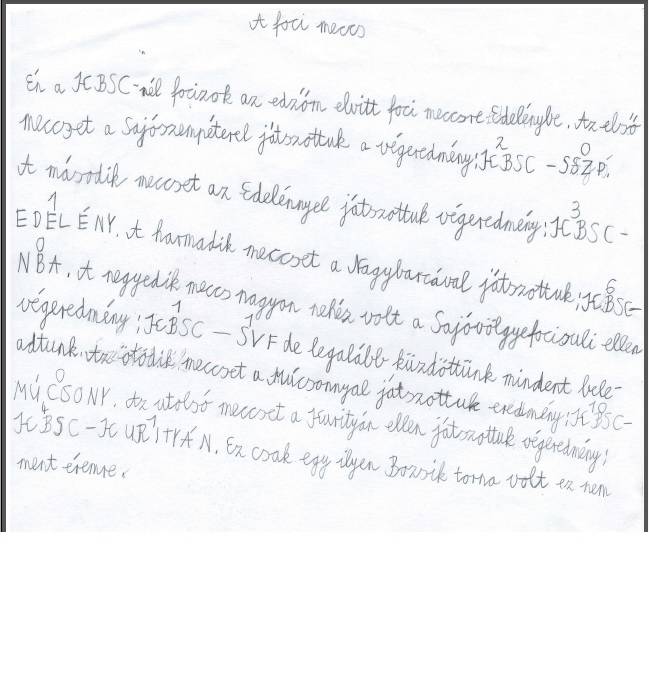 A foci meccs
Én a KBSC-nél focizok az edzőm elvitt foci meccsre Edelénybe. Az első
meccset a Sajószempéterel játszottuk a végeredmény: KBSC - SSZP.
2 0
A második meccset az Edelénnyel játszottuk végeredmény: KBSC-
3
EDELÉNY. A harmadik meccset a Nagybarcával játszottuk: KBSC-
1 6
NBA. A negyedik meccs nagyon nehéz volt a Sajóvölgyefocisuli ellen
0
végeredmény: KBSC - SVF de legalább küzdöttünk mindent bele-
1 1
adtunk. Az ötödik meccset a Múcsonnyal játszottuk eredmény: KBSC-
10
MÚCSONY. Az utolsó meccset a Kurityán ellen játszottuk végeredmény:
0
KBSC - KURITYÁN. Ez csak egy ilyen Bozsik torna volt ez nem
4 1
ment éremre.